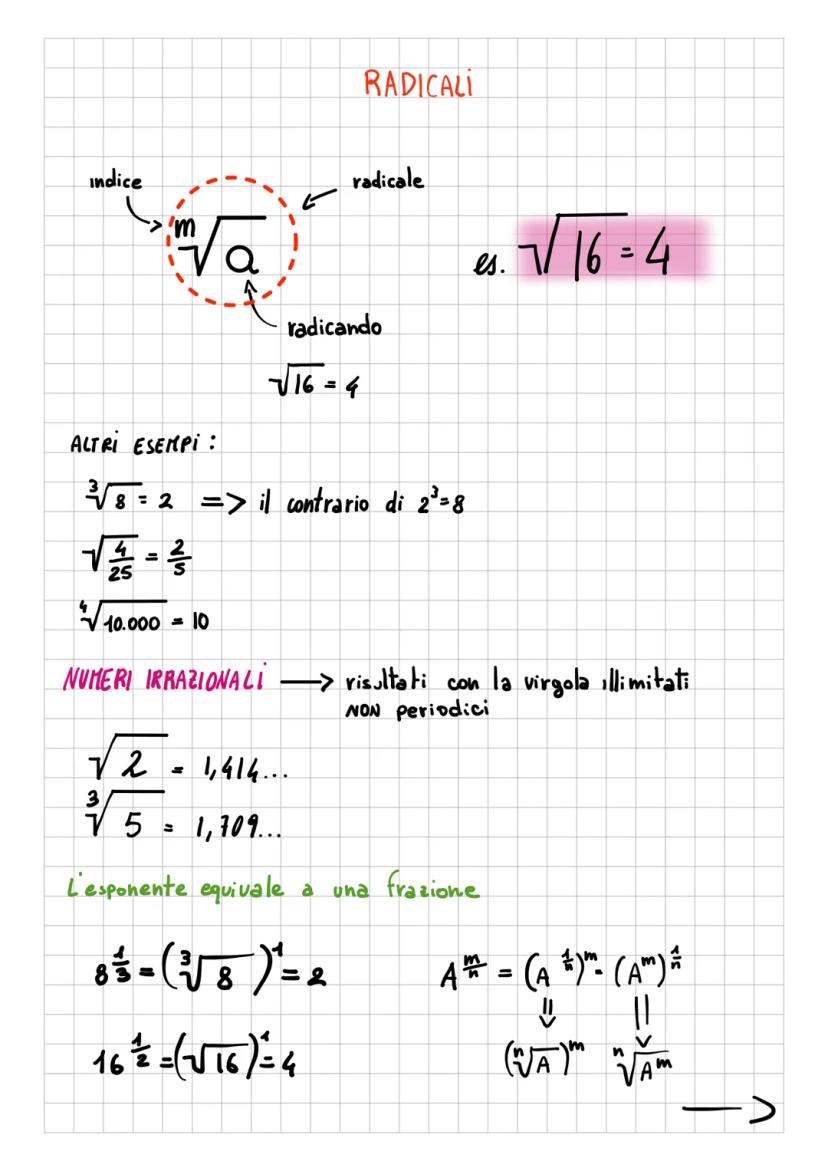 RADICALI
indice
radicale
ᵐ√a
radicando
es. √16 = 4
√16 = 4
ALTRI ESEMPI :
³√8 = 2 => il contrario di 2³=8
√4/25 = 2/5
⁴√10.000 = 10
NUMERI IRRAZIONALI → risultati con la virgola illimitati
NON periodici
√2 = 1,414...
³√5 = 1,709...
L'esponente equivale a una frazione
8^(1/3) = (³√8)¹ = 2
16^(1/2) = (√16)¹ = 4
A^(m/n) = (A^(1/n))^m = (A^m)^(1/n)
(ⁿ√A)^m ⁿ√A^m